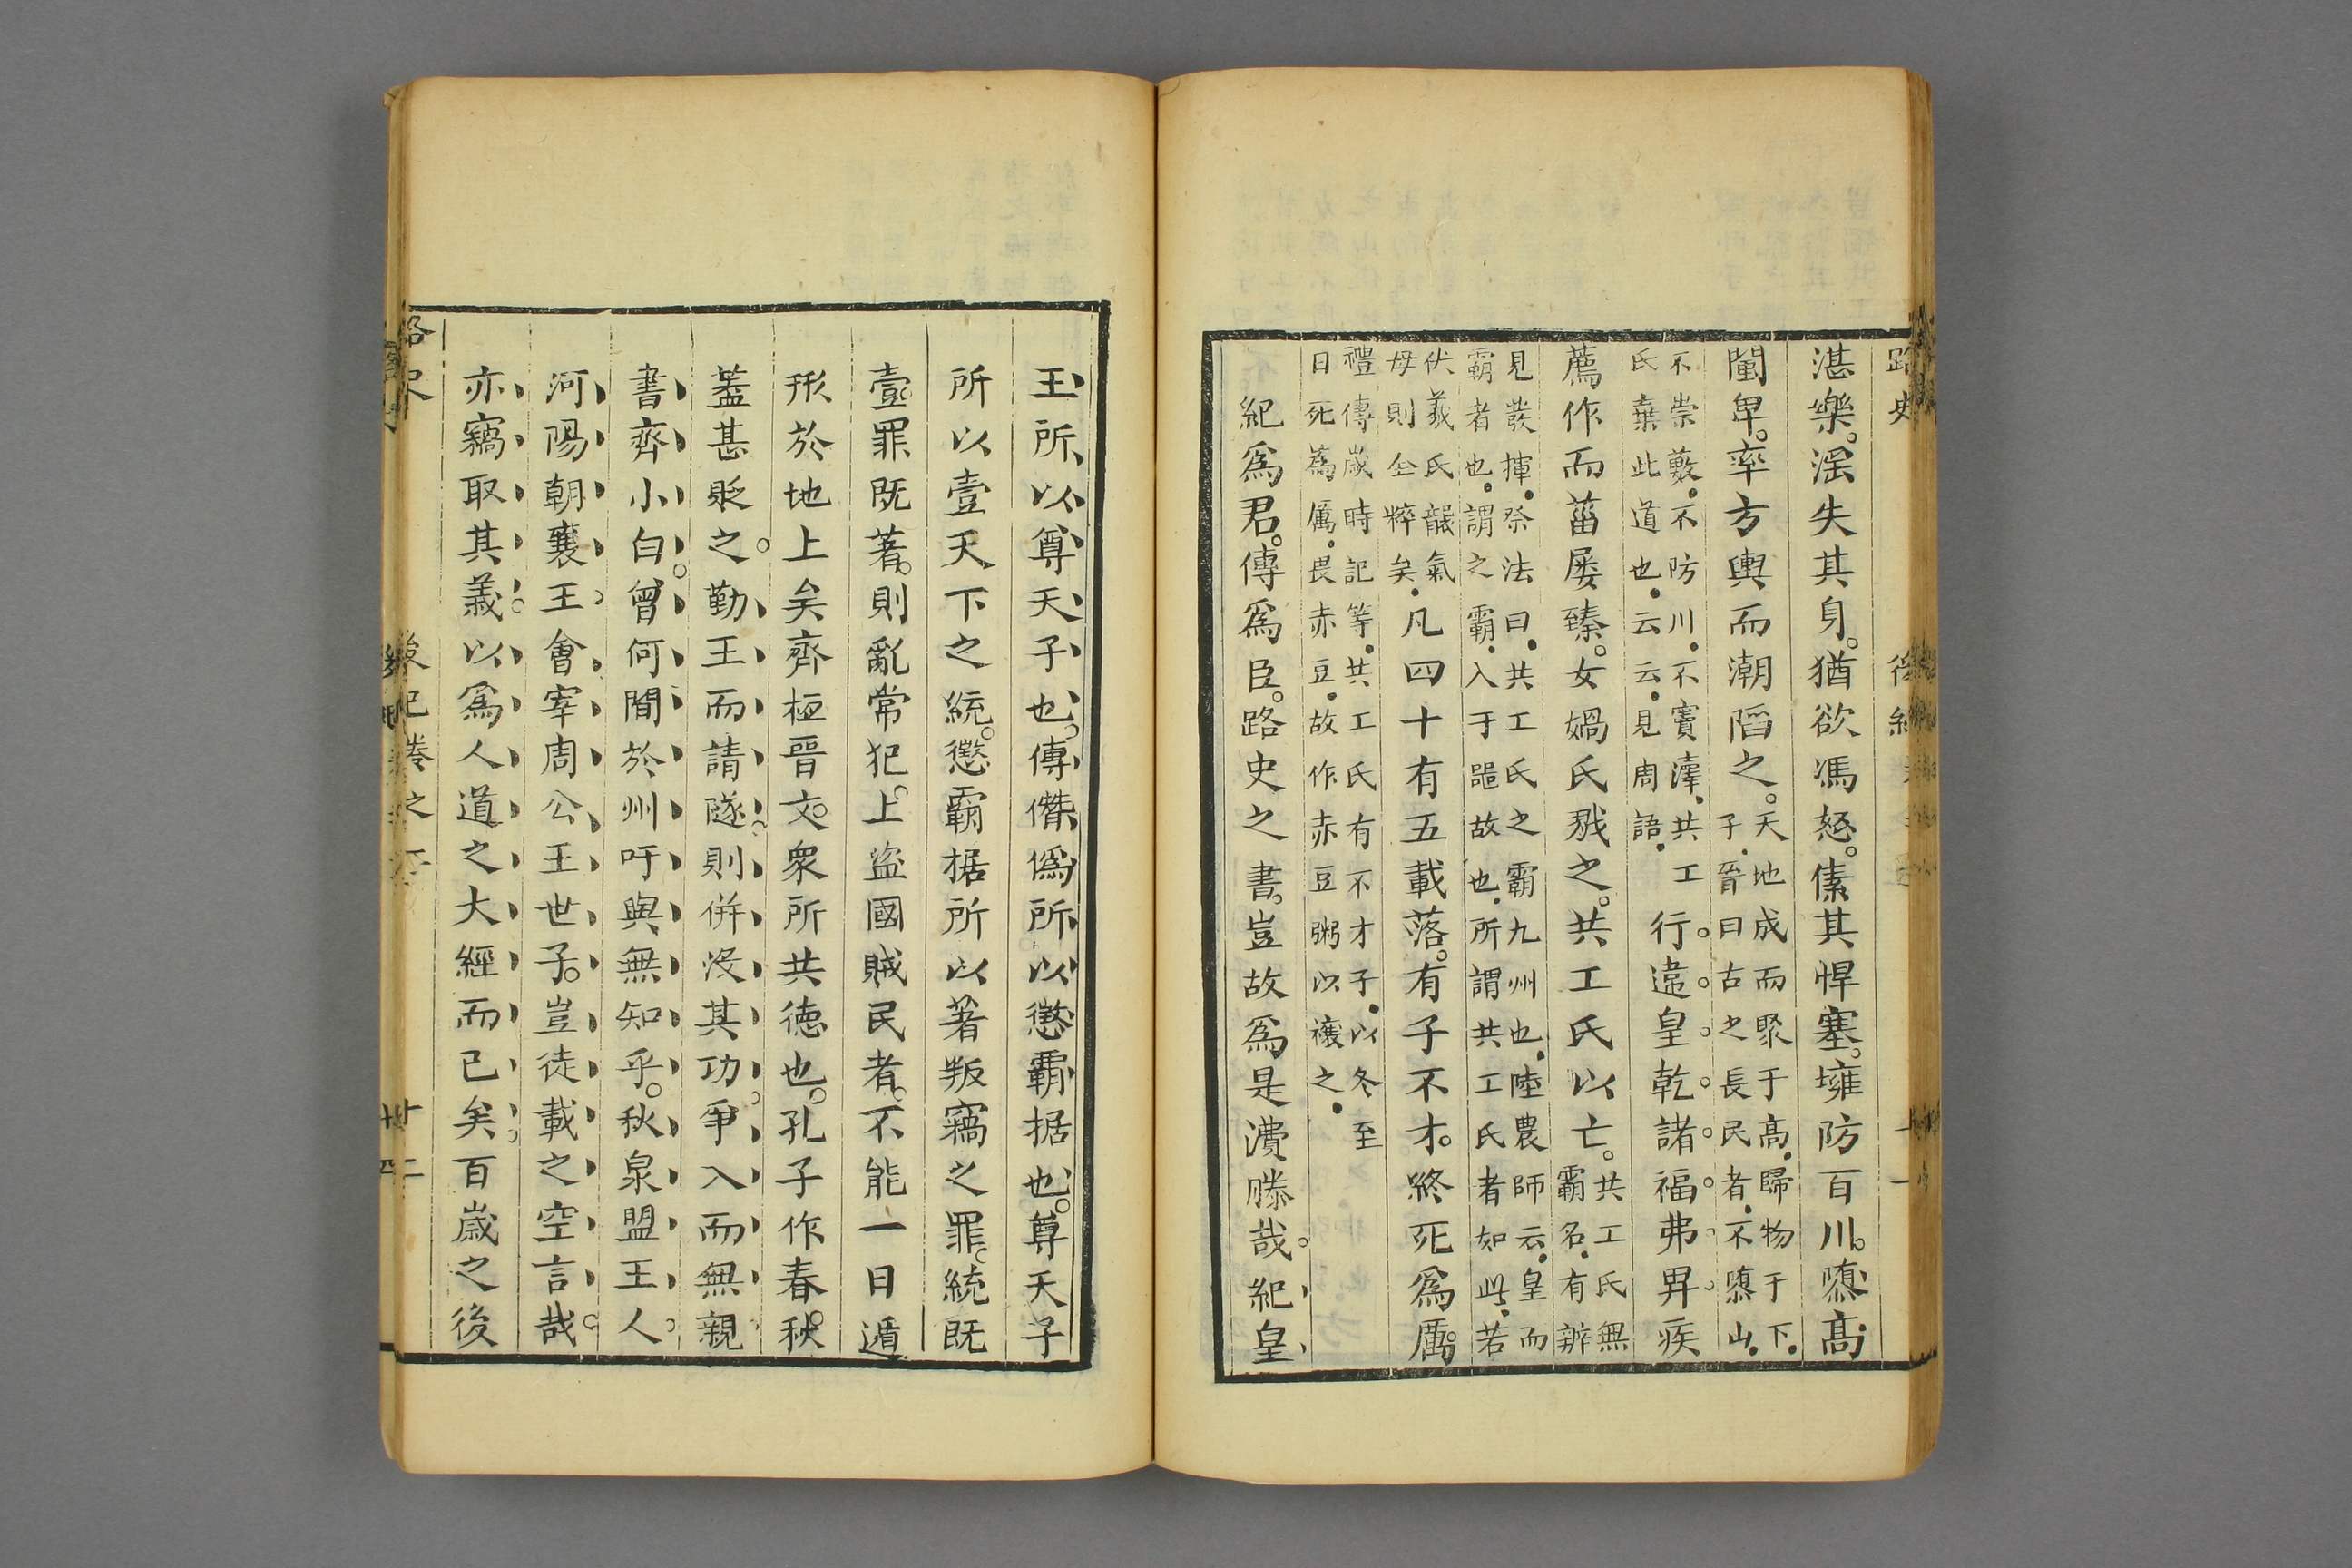 路史
湛樂。滛失其身。猶欲馮怒。傃其悍塞。壅防百川。隳高
闉卑。率方輿而潮陷之。
天地成而聚于高。歸物于下。
子。晉曰古之長民者。不隳山。
不崇藪。不防川。不竇澤。共工
氏棄此道也。云云。見周語。
行違皇乾諸福弗畀疾
薦作而菑屢臻。女媧氏戮之。共工氏以亡。
共工氏無
霸名。有辨
見發揮。祭法曰。共工氏之霸九州也。陸農師云。皇而
霸者也。謂之霸。入于噐故也。所謂共工氏者如此。若
伏羲氏龍氣
毋則全粹矣。
凡四十有五載落。有子不才。終死爲厲。
禮傳歲時記等。共工氏有不才子。以冬至
日死爲厲。畏赤豆。故作赤豆粥以禳之。
紀爲君。傳爲臣。路史之書。豈故爲是瀆賸哉。紀皇
王所以尊天子也。傳僣僞所以懲霸据也。尊天子
所以壹天下之統。懲霸据所以著叛竊之罪。統既
壹罪既著。則亂常犯上盜國賊民者。不能一日遁
形於地上矣齊桓晉文。衆所共德也。孔子作春秋
蓋甚貶之。勤王而請隧。則併没其功。爭入而無親
書齊小白。曾何間於州吁與無知乎。秋泉盟王人。
河陽朝襄王。會宰周公王世子。豈徒載之空言哉。
亦竊取其義。以爲人道之大經而已矣。百歲之後
路史
卷之
十二